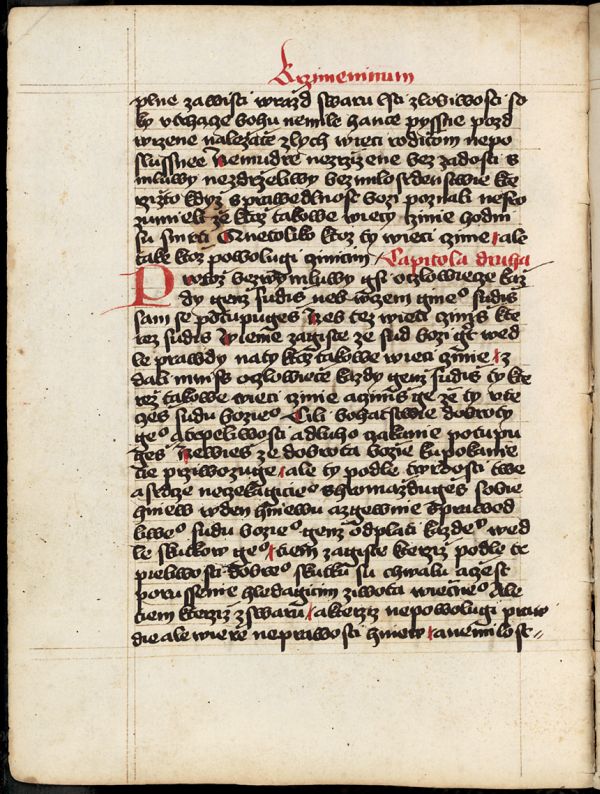 K rzimeninum
plne zawisti wrazd swaru lsti zlobiwosti so
ky vtrhacze bohu nemile hancze pyssne pozd
wizene nalezacze zlych wieci rodiczom nepo
slussnee nemudre nezrzizene bez zadosti s
mluwy nezdrzeliwy bez milosrdenstwie kte
rzizto kdyz sprawedlnost bozi poznali nesro
zumieli ze ktoz takowe wieczy czinie hodni
su smrti A netoliko ktoz ty wieci czinie ale
take ktoz powolugi cziniczim Capitola druha
Protoz bez wymluwy gsi oczlowiecze kaz
dy genz sudis neb w czem gineho sudis
sam se potupuges Nes tez wieci czinis kte
rez sudis Wieme zagiste ze sud bozi gest wed
le prawdy na ty ktoz takowe wieci czinie z
dali mnis oczlowiecze kazdy genz sudis ty kte
rez takowe wieci czinie a czinis ge ze ty vte
czes sudu bozieho Cili bohatstwie dobroty
geho a trpeliwosti a dluho czakanie potupu
ges Newies ze dobrota bozie ku pokanie
tie przwozuge ale ty podle twrdosti twe
a srdcze neczekagicieho shromazduges sobie
hniew w den hniewu a zgewenie sprawed
liweho sudu bozieho genz odplati kazdeho wed
le skutkow geho tiem zagiste kterziz podle tr
pieliwosti dobreho skutku su chwalu a czest
porussenie hledagicim ziwota wieczneho Ale
tiem kterziz z swaru a kterziz nepowolugi praw
die ale wierze neprawosti hniew a nemilost